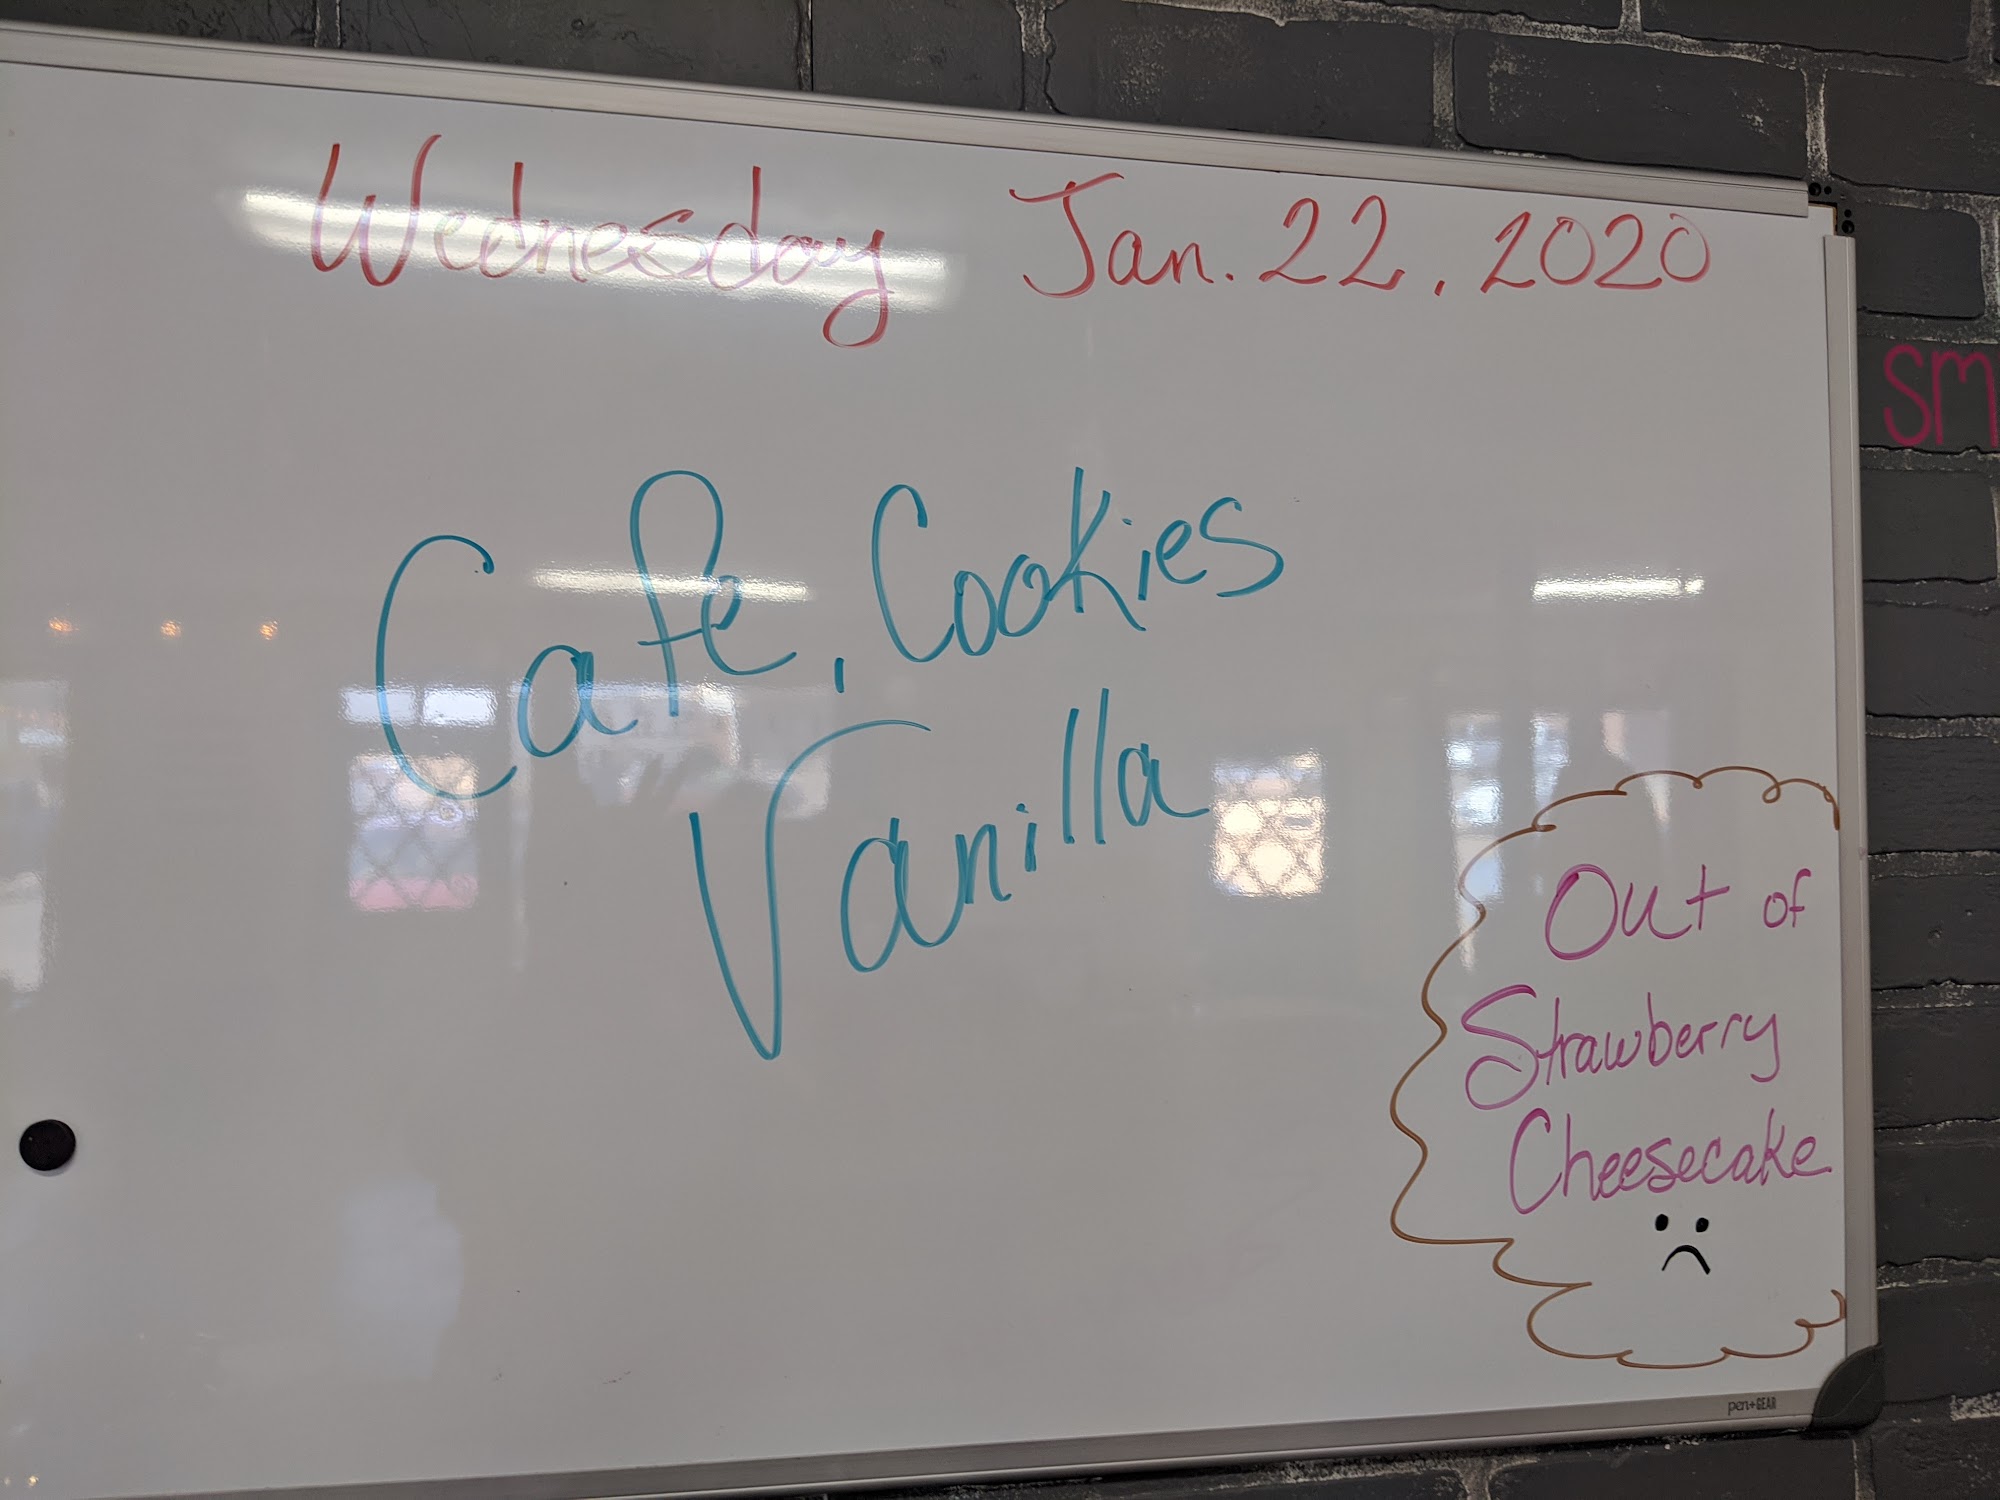 Wednesday Jan. 22, 2020
Cafe, Cookies
Vanilla
Out of
Strawberry
Cheesecake
SM
pen+GEAR